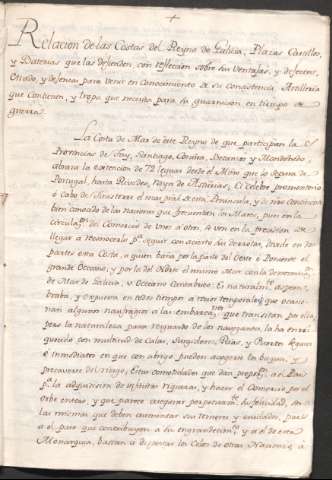 +
Relacion de las Costas del Reyno de Galicia, Plazas Castillos,
y Baterias que las defienden, con reflexion sobre sus Ventajas, y defectos,
Estado, y defensa para venir en Conocimiento de su Consistencia, Artilleria
que Contienen, y tropa que necesita para su guarnicion en tiempo de
guerra.
La Costa de Mar de este Reyno de que participan las
Provincias de Tuy, Santiago, Coruña, Betanzos y Mondoñedo,
abraza la extencion de 72 leguas desde el Miño que lo separa de
Portugal, hasta Rivadeo, Raya de Asturias. El celebre promontorio
ô Cabo de Finisterre el mas de esta Peninsula, y
bien conocido de los Navios que frequentan los Mares, pues en la
del Comercio de unos a otros, se ven en la precision de
llegar a reconocerlo para seguir con acierto sus derrotas, divide en dos
partes esta Costa, a quien baña por la parte del Oeste ô Poniente el
grande Occeano; y por la del Norte el mismo Mar con la denominacion
de Mar de Galicia, u Occeano Cantabrico. Es naturalmente aspera,
braba, y expuesta en todos tiempos a temporales que ocasio-
nan algunos naufragios a las embarcaciones que transitan por ella,
pero la naturaleza para resguardo de los navegantes, la ha enri-
quecido con multitud de Calas, Surgideros, Rias, y Puertos
ê inmediatos en que con abrigo pueden acogerse los buques, y
precaverse del riesgo; Estas comodidades que dan
la adquisicion de infinitas riquezas, y hacer el Comercio por el
orbe entero, y que parece asegurar su felicidad, son
las mismas que deben aumentar sus temores, y cuidados, pues
a el paso que contribuyen a su engrandecimiento, y a el de esta
Monarquia, bastan a despertar los Celos de otras Naciones a